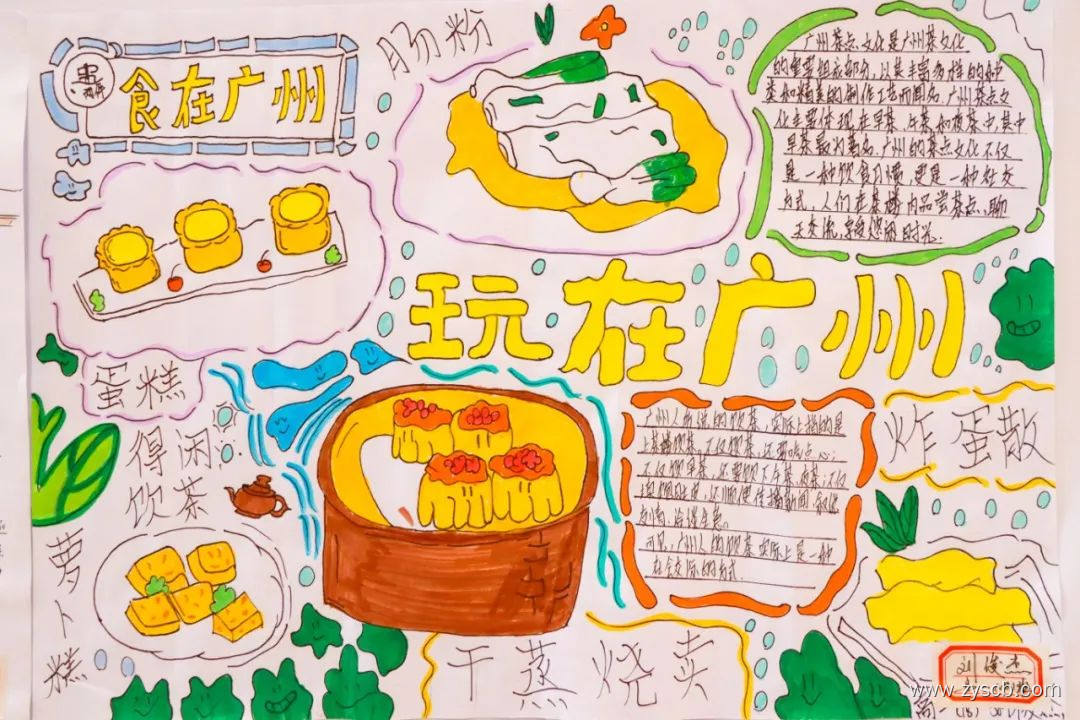 食在广州
肠粉
广州茶点文化是广州茶文化
的重要组成部分，以其丰富多样的种
类和精美的制作工艺而闻名。广州茶点文
化主要体现在早茶、午茶和夜茶中，其中
早茶最为著名。广州的茶点文化不仅
是一种饮食习惯，更是一种社交
方式，人们在茶楼内品尝茶点、聊
天交流，享受悠闲时光。
玩在广州
蛋糕
得闲
饮茶
广州人所说的饮茶，实际上指的是
上茶楼饮茶，不仅饮茶，还要吃点心；
不仅饮早茶，还要饮下午茶、夜茶；不仅
可见，广州人的饮茶实际上是一种
社会交际的方式。
炸蛋散
萝卜糕
干蒸烧卖
刘俊杰
www.zyscb.com